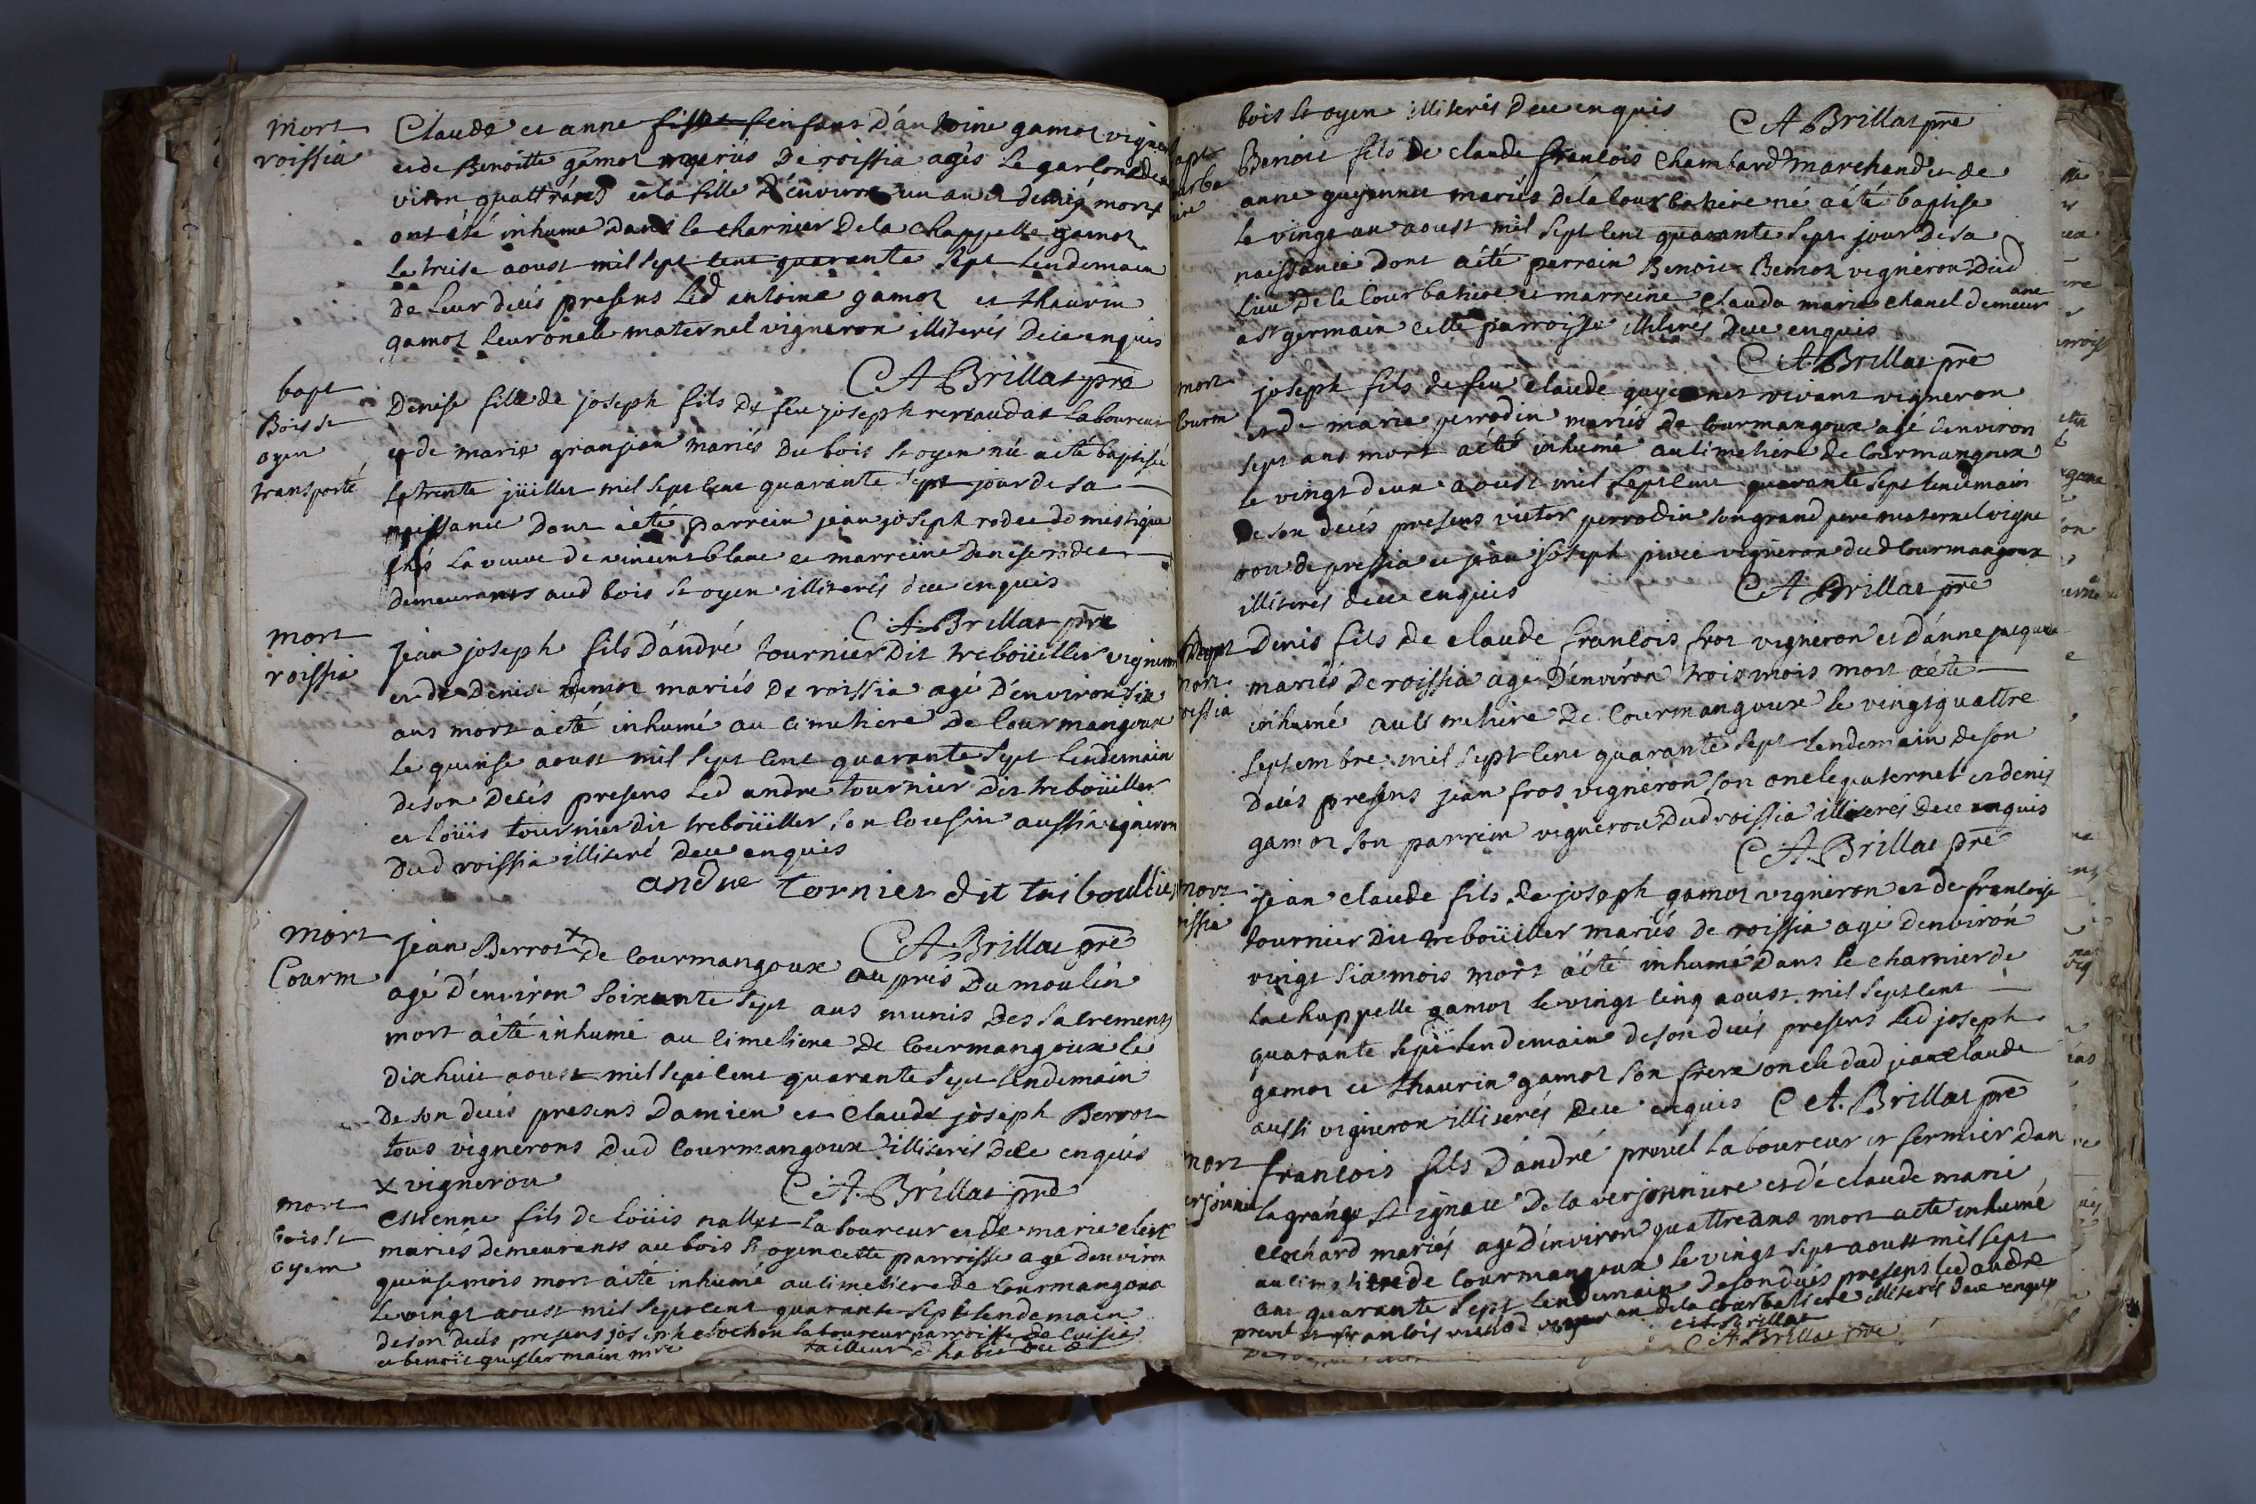 mort
roissia
Claude et anne enfans d'antoine gamot vigner
et de Benoitte gamot mariés de roissia agés le garson den
viron quattr ans et la fille d'environ un an et demis mort
ont été inhumé dans le charnier de la chappelle gamot
le treise aoust mil sept cent quarante sept lendemain
de leur decés presens led antoine gamot et thaurin
gamot leur oncle maternel vigneron illiterés de ce enquis
C A Brillat pre
bapt
Bois st
oyen
transporté
Denise fille de joseph fils de feu joseph renaudat laboureur
et de marie granjean mariés du bois st oyen née a eté baptisée
le trente jüillet mil sept cent quarante sept jour de sa
naissance dont a eté parrein jean joseph rodet domestique
chés la veuve de vincent blanc et marreine denise rodet
demeurants aud bois st oyen illiterés de ce enquis
C A Brillat pre
mort
roissia
jean joseph fils d'andré tournier dit treboüiller vigneron
et de Denise gamot mariés de roissia agé d'environ six
ans mort a eté inhumé au cimetiere de Courmangoux
le quinse aoust mil sept cent quarante sept lendemain
de son decés presens led andre tournier dit treboüiller
et loüis tournier dit treboüiller son cousin aussi vigneron
dud roissia illiteré de ce enquis
andre tornier dit triboullier
C A Brillat pre
mort
Courm
jean Berrot x de Courmangoux au prés du moulin
agé d'environ soixante sept ans munis des sacrements
mort a eté inhumé au cimetiere de Courmangoux le
dix huit aoust mil sept cent quarante sept lendemain
de son decés presens Damien et Claude joseph Berrot
tous vignerons dud Courmangoux illiterés de ce enquis
x vigneron
C A Brillat pre
mort
bois st
oyen
estienne fils de loüis nallet laboureur et de marie clerc
mariés demeurants au bois st oyen cette parroisse agé d'environ
quinse mois mort a eté inhumé au cimetiere de Courmangoux
le vingt aoust mil sept cent quarante sept lendemain
de son decés presens joseph clochon laboureur parroisse de Cuisiat
et benoit germain tailleur d'habit du d
bois st oyen illiterés de ce enquis
C A Brillat pre
Benoit fils de claude francois Chambard marchand et de
anne guyennet mariés de la Courbatiere né a été baptise
le vingt un aoust mil sept cent quarante sept jour de sa
naissance dont a été parrein Benoit Bernot vigneron dud
lieu de la Courbatiere et marreine Clauda marie Chanel demeur
ane
a st germain cette parroisse illiterés de ce enquis
C A Brillat pre
mort
Courm
joseph fils de feu claude guyennet vivant vigneron
et de marie perrodin mariés de Courmangoux agé denviron
sept ans mort a été inhumé au cimetiere de Courmangoux
le vingt deux aoust mil sept cent quarante sept lendemain
de son decés presens victor perrodin son grand pere maternel vigne
ron de pressia et jean joseph vigneron dud Courmangoux
illiterés de ce enquis
C A Brillat pre
mort
roissia
Denis fils de claude francois frot vigneron et d'anne
mariés de roissia agé d'environ trois mois mort a eté
inhumé au cimetiere de Courmangoux le vingt quattre
septembre mil sept cent quarante sept lendemain de son
decés presens jean frot vigneron son oncle paternel et denis
gamot son parrein vigneron dud roissia illiterés de ce enquis
C A Brillat pre
mort
issia
jean claude fils de joseph gamot vigneron et de francoise
tournier dit treboüiller mariés de roissia agé denviron
vingt six mois mort a été inhumé dans le charnier de
la chappelle gamot le vingt cinq aoust mil sept cent
quarante sept lendemain de son decés presens led joseph
gamot et thaurin gamot son frere oncle dud jean claude
aussi vigneron illiterés de ce enquis C A Brillat pre
mort
francois fils d'andré prevel laboureur et fermier dan
la grange st ignace de la verjonniere et de claude marie
clochard mariés agé d'environ quattre ans mort a eté inhumé
au cimetiere de Courmangoux le vingt sept aoust mil sept
cent quarante sept lendemain de son decés presens led andré
prevel et francois vigneron de la Courbatiere illiterés de ce enquis
C A Brillat pre